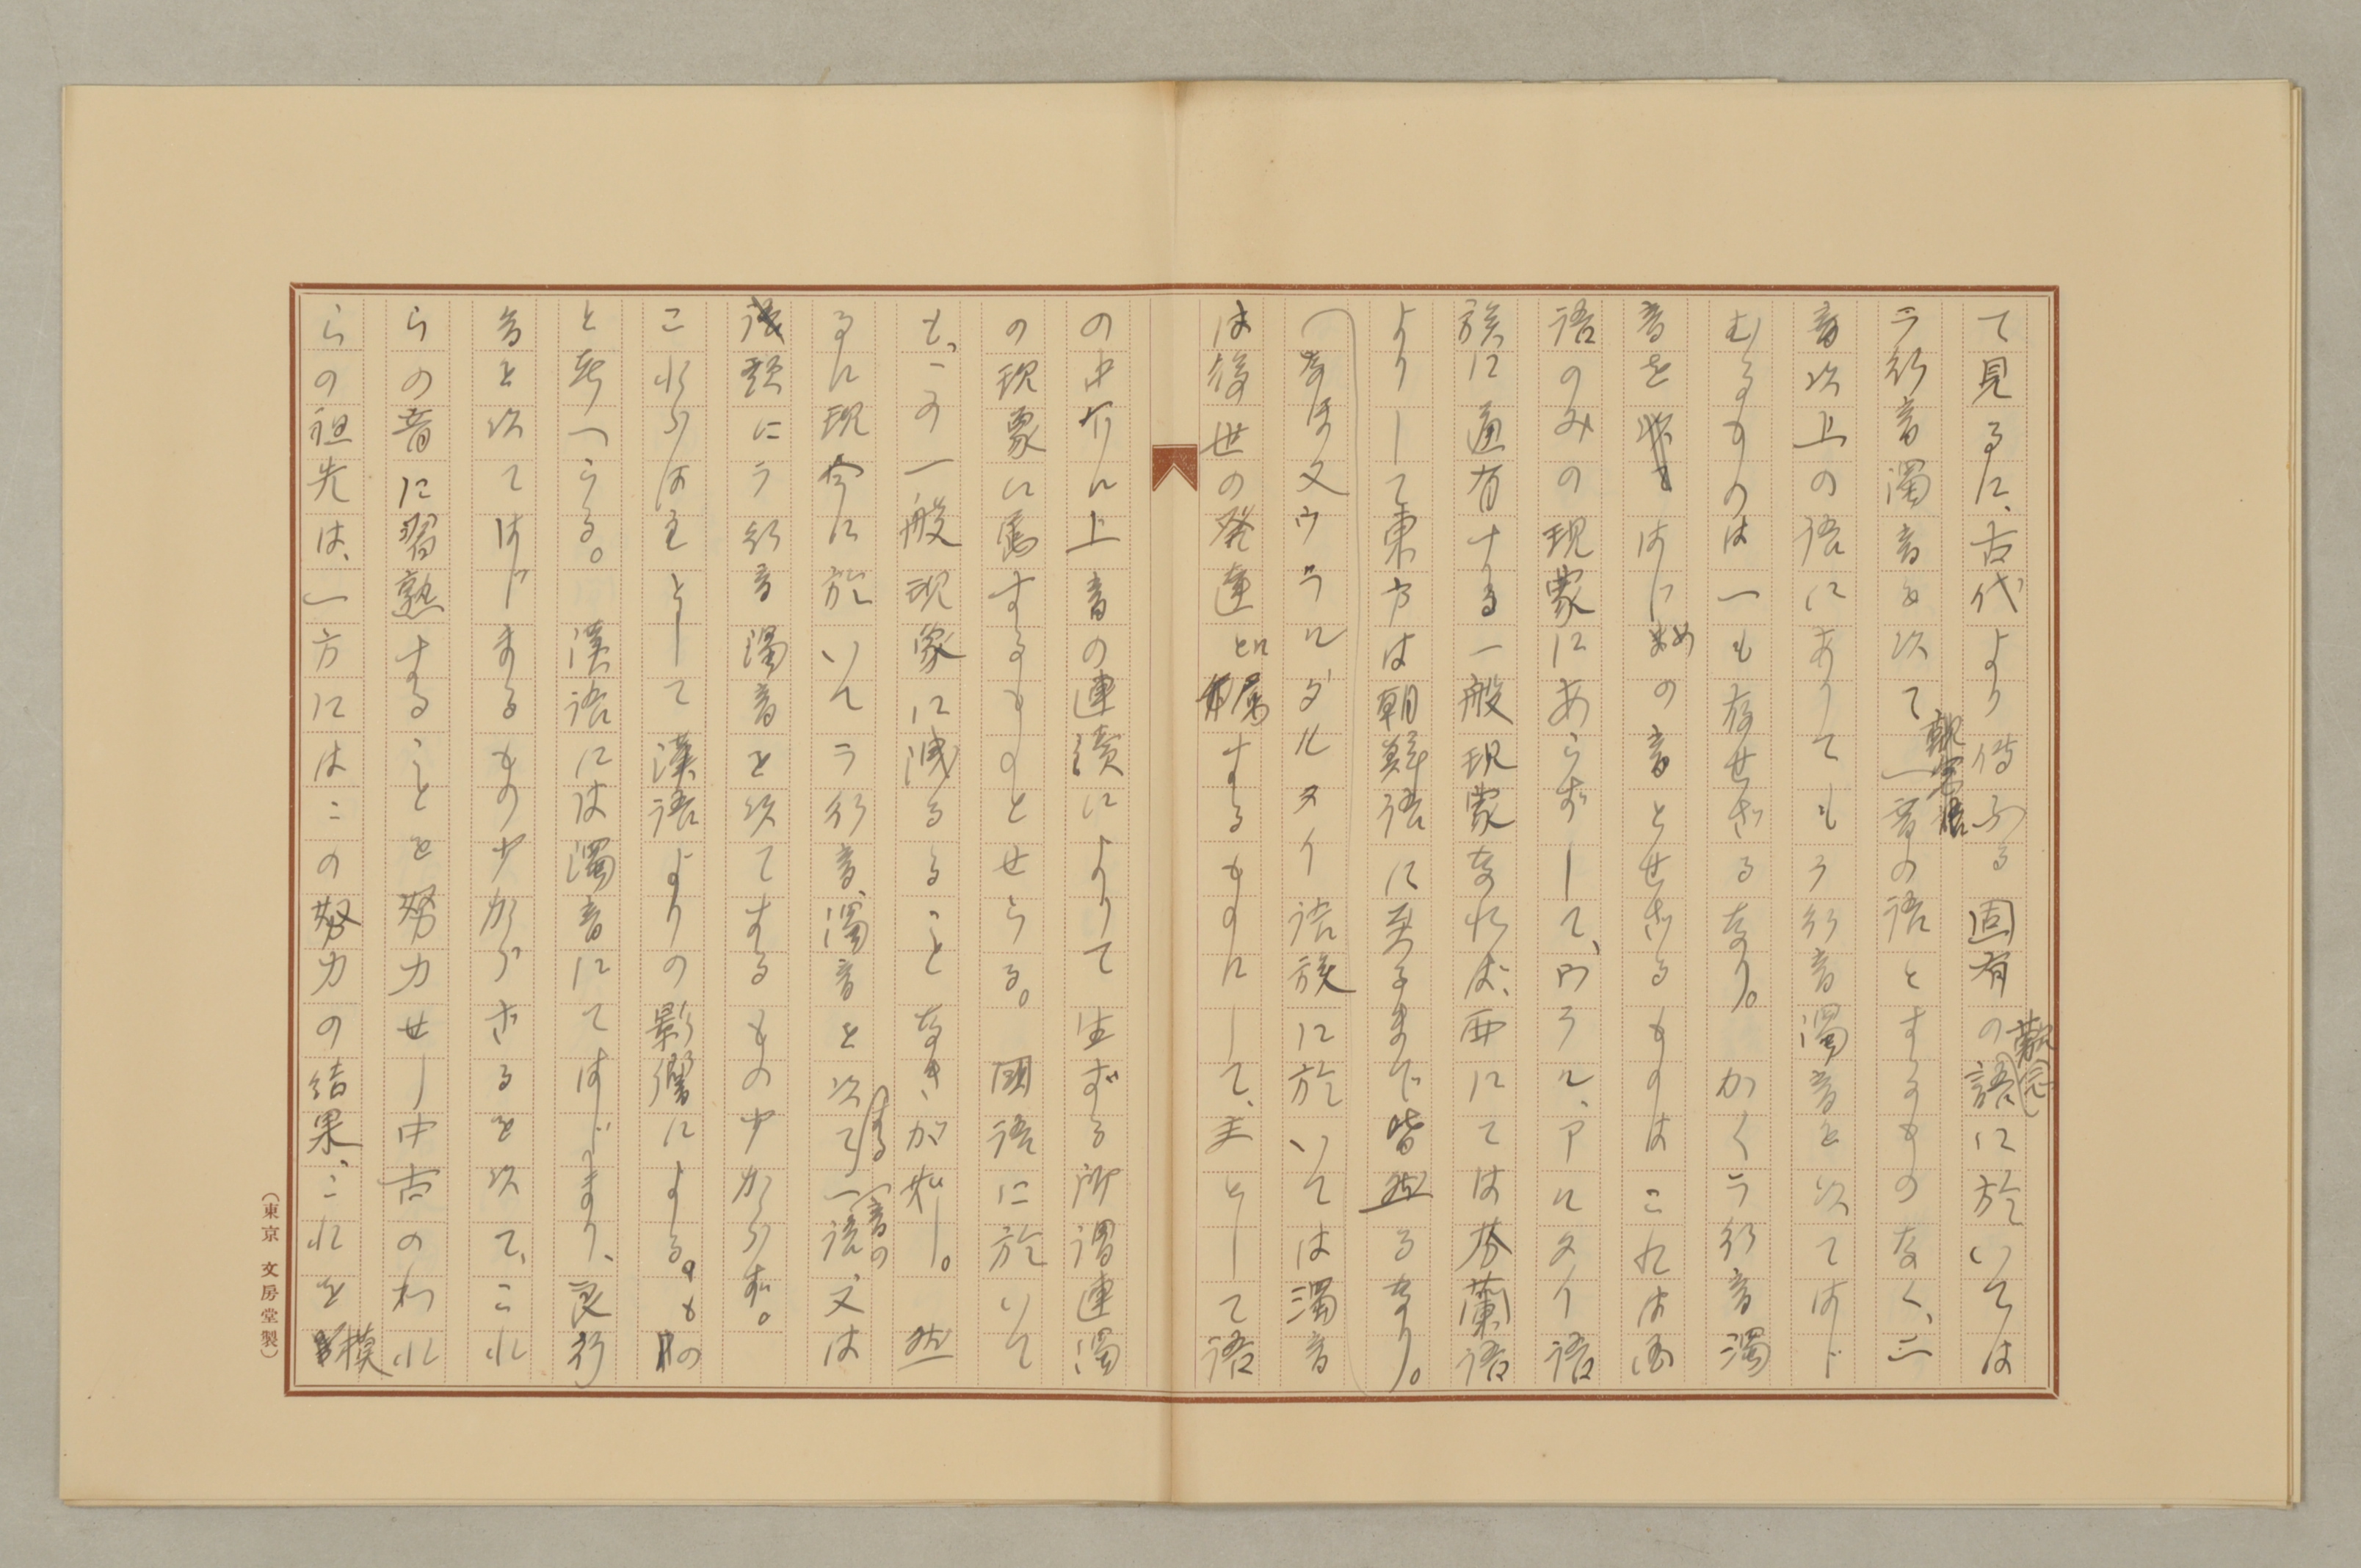 て見るに、古代より傳ふる固有の語に於いては
ラ行音濁音を以て一音の語とするものなく、二
音以上の語にありてもラ行音濁音を以てはじ
むるものは一も存せざるなり。かくラ行音濁
音をはじめの音とせざるものはこれは国
語のみの現象にあらずして、ウラル、アルタイ語
族に通有する一般現象なれば、西にては芬蘭語
よりして東方は朝鮮語に至るまで皆然るなり。
(なほ又ウラルダルタイ語族に於いては濁音
は後世の発達に属するものにして、主として語
の中有に上音の連続によりて生ずる所謂連濁
の現象に属するものとせらる。国語に於いて
も、この一般現象に洩るることなきが如し。然
るに現今に於いてラ行音、濁音を以てする一音の語、又は
類にラ行音濁音を以てするもの少からず。
これらは主として漢語よりの影響による。もの
と考へらる。漢語には濁音にてはじまり、良行
音を以てはじまるもの少からざるを以て、これ
らの音に習熟することを努力せし中古のわれ
らの祖先は、一方にはこの努力の結果、これを模
(東京 文房堂製)